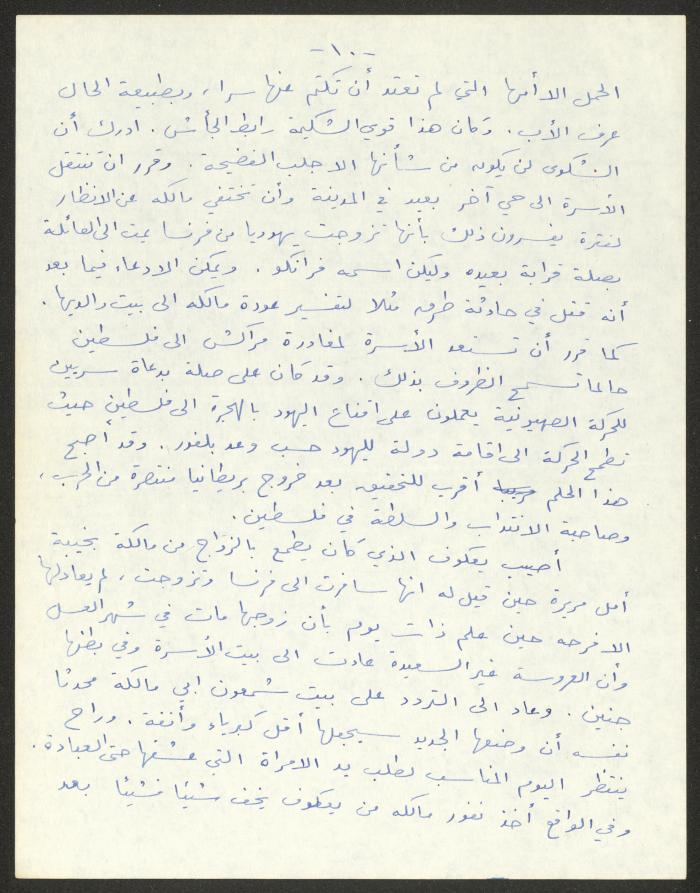 -١٠-
الحمل الا أمها التي لم تعتد أن تكتم عنها سرا، وبطبيعة الحال
عرف الأب. وكان هذا قوي الشكيمة رابط الجأش. ادرك أن
الشكوى لن يكون من شأنها الا جلب الفضيحة. وقرر ان تنتقل
الأسرة الى حي آخر بعيد في المدينة وأن تختفي مالكه عن الانظار
لفترة يفسرون ذلك بأنها تزوجت يهوديا من فرنسا يمت الى العائلة
بصلة قرابة بعيده وليكن اسمه فرانكو. ويمكن الادعاء فيما بعد
أنه قتل في حادثة طرق مثلا لتفسير عودة مالكه الى بيت والديها.
كما قرر أن تستعد الأسرة لمغادرة مراكش الى فلسطين
حالما تسمح الظروف بذلك. وقد كان على صلة بدعاة سريين
للحركة الصهيونية يعملون على اقناع اليهود بالهجرة الى فلسطين حيث
تطمح الحركة الى اقامة دولة لليهود حسب وعد بلفور. وقد أصبح
هذا الحلم أقرب للتحقيق بعد خروج بريطانيا منتصرة من الحرب،
وصاحبة الانتداب والسلطة في فلسطين.
أصيب يعكوف الذي كان يطمع بالزواج من مالكة بخيبة
أمل مريرة حين قيل له انها سافرت الى فرنسا وتزوجت، لم يعادلها
الا فرحه حين علم ذات يوم بأن زوجها مات في شهر العسل
وأن العروسة غير السعيدة عادت الى بيت الأسرة وفي بطنها
جنين. وعاد الى التردد على بيت شمعون ابي مالكة محدثا
نفسه أن وضعها الجديد سيجعلها أقل كبرياء وأنفة. وراح
ينتظر اليوم المناسب لطلب يد الامراة التي عشقها حتى العبادة.
وفي الواقع أخذ نفور مالكه من يعكوف يخف شيئا فشيئا بعد